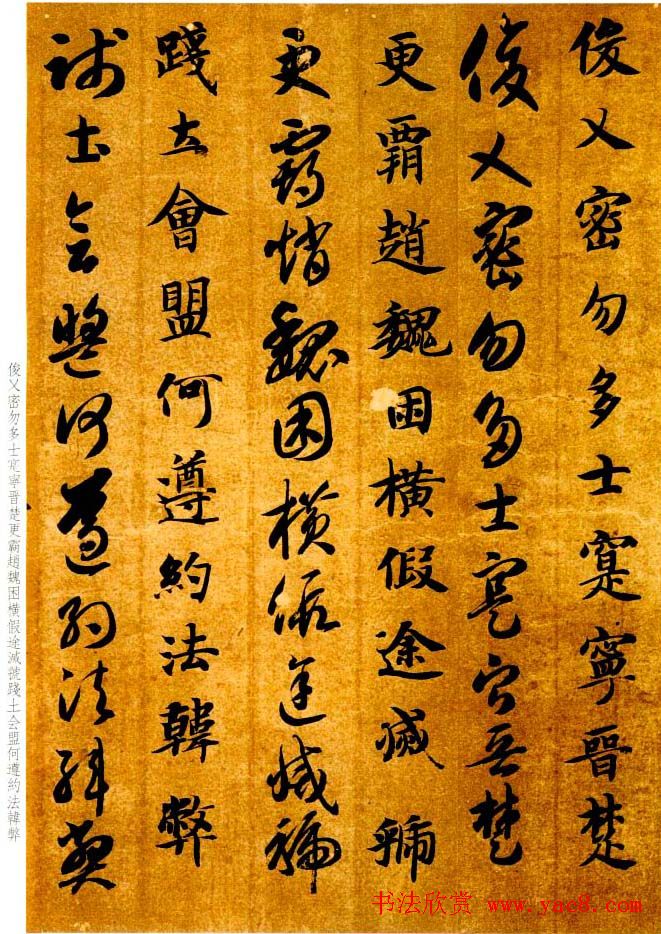 俊乂密勿多士寔寧晉楚
俊乂密勿多士寔寧晉楚
更霸趙魏困橫假途滅虢
更霸趙魏困橫假途滅虢
踐土會盟何遵約法韓弊
踐土會盟何遵約法韓弊
俊乂密勿多士寔寧晋楚更霸趙魏困横假途滅虢踐土会盟何遵約法韓弊
书法欣赏 www.yac8.com